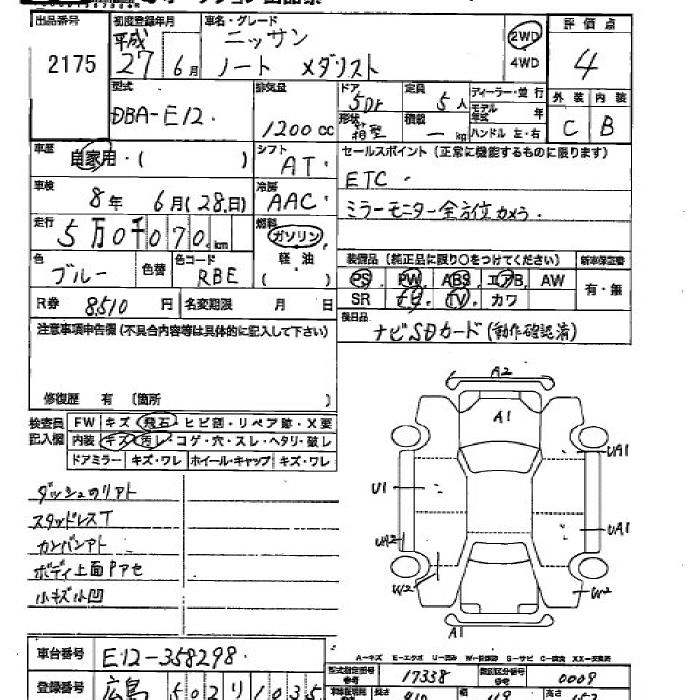 出品番号 初度登録年月 車名・グレード 評価点
2175
平成
27 6月
ニッサン
ノート メダリスト
2WD
4WD
4
型式 排気量 ドア 定員 ディーラー・並行 外装 内装
DBA-E12 1200cc 5Dr 5人 モデル年式 年
形状 箱型 積載 ー kg ハンドル 左・右
C B
車歴 自家用・( ) シフト AT セールスポイント(正常に機能するものに限ります)
ETC
車検 8年 6月(28日) 冷房 AAC
ミラーモニター 全方位カメラ
走行 5万0千070km 燃料 ガソリン
軽油
( )
装備品(純正品に限り○をつけてください) 新車保証書
色 ブルー 色替 色コード RBE
PS PW ABS エアB AW 有・無
SR ナビ TV カワ
R券 8510円 名変期限 月 日
後日品
ナビSDカード(動作確認済)
注意事項申告欄(不具合内容等は具体的に記入して下さい)
修復歴 有 〔箇所 〕
検査員記入欄
FW キズ・飛石・ヒビ割・リペア跡・X要
内装 キズ・汚レ・コゲ・穴・スレ・ヘタリ・破レ
ドアミラー キズ・ワレ ホイール・キャップ キズ・ワレ
スタッドレスT
ボディ上面
小キズ小凹
A2
A1
UA1
U1
UA1
UA2
W2
W2
A1
車台番号 E12-358298
登録番号 広島 502 リ 1035
A-キズ E-エクボ U-凹み W-板金跡 S-サビ C-腐食 XX-交換済
型式指定番号 17338 類別区分番号 0009
長さ 幅 高さ